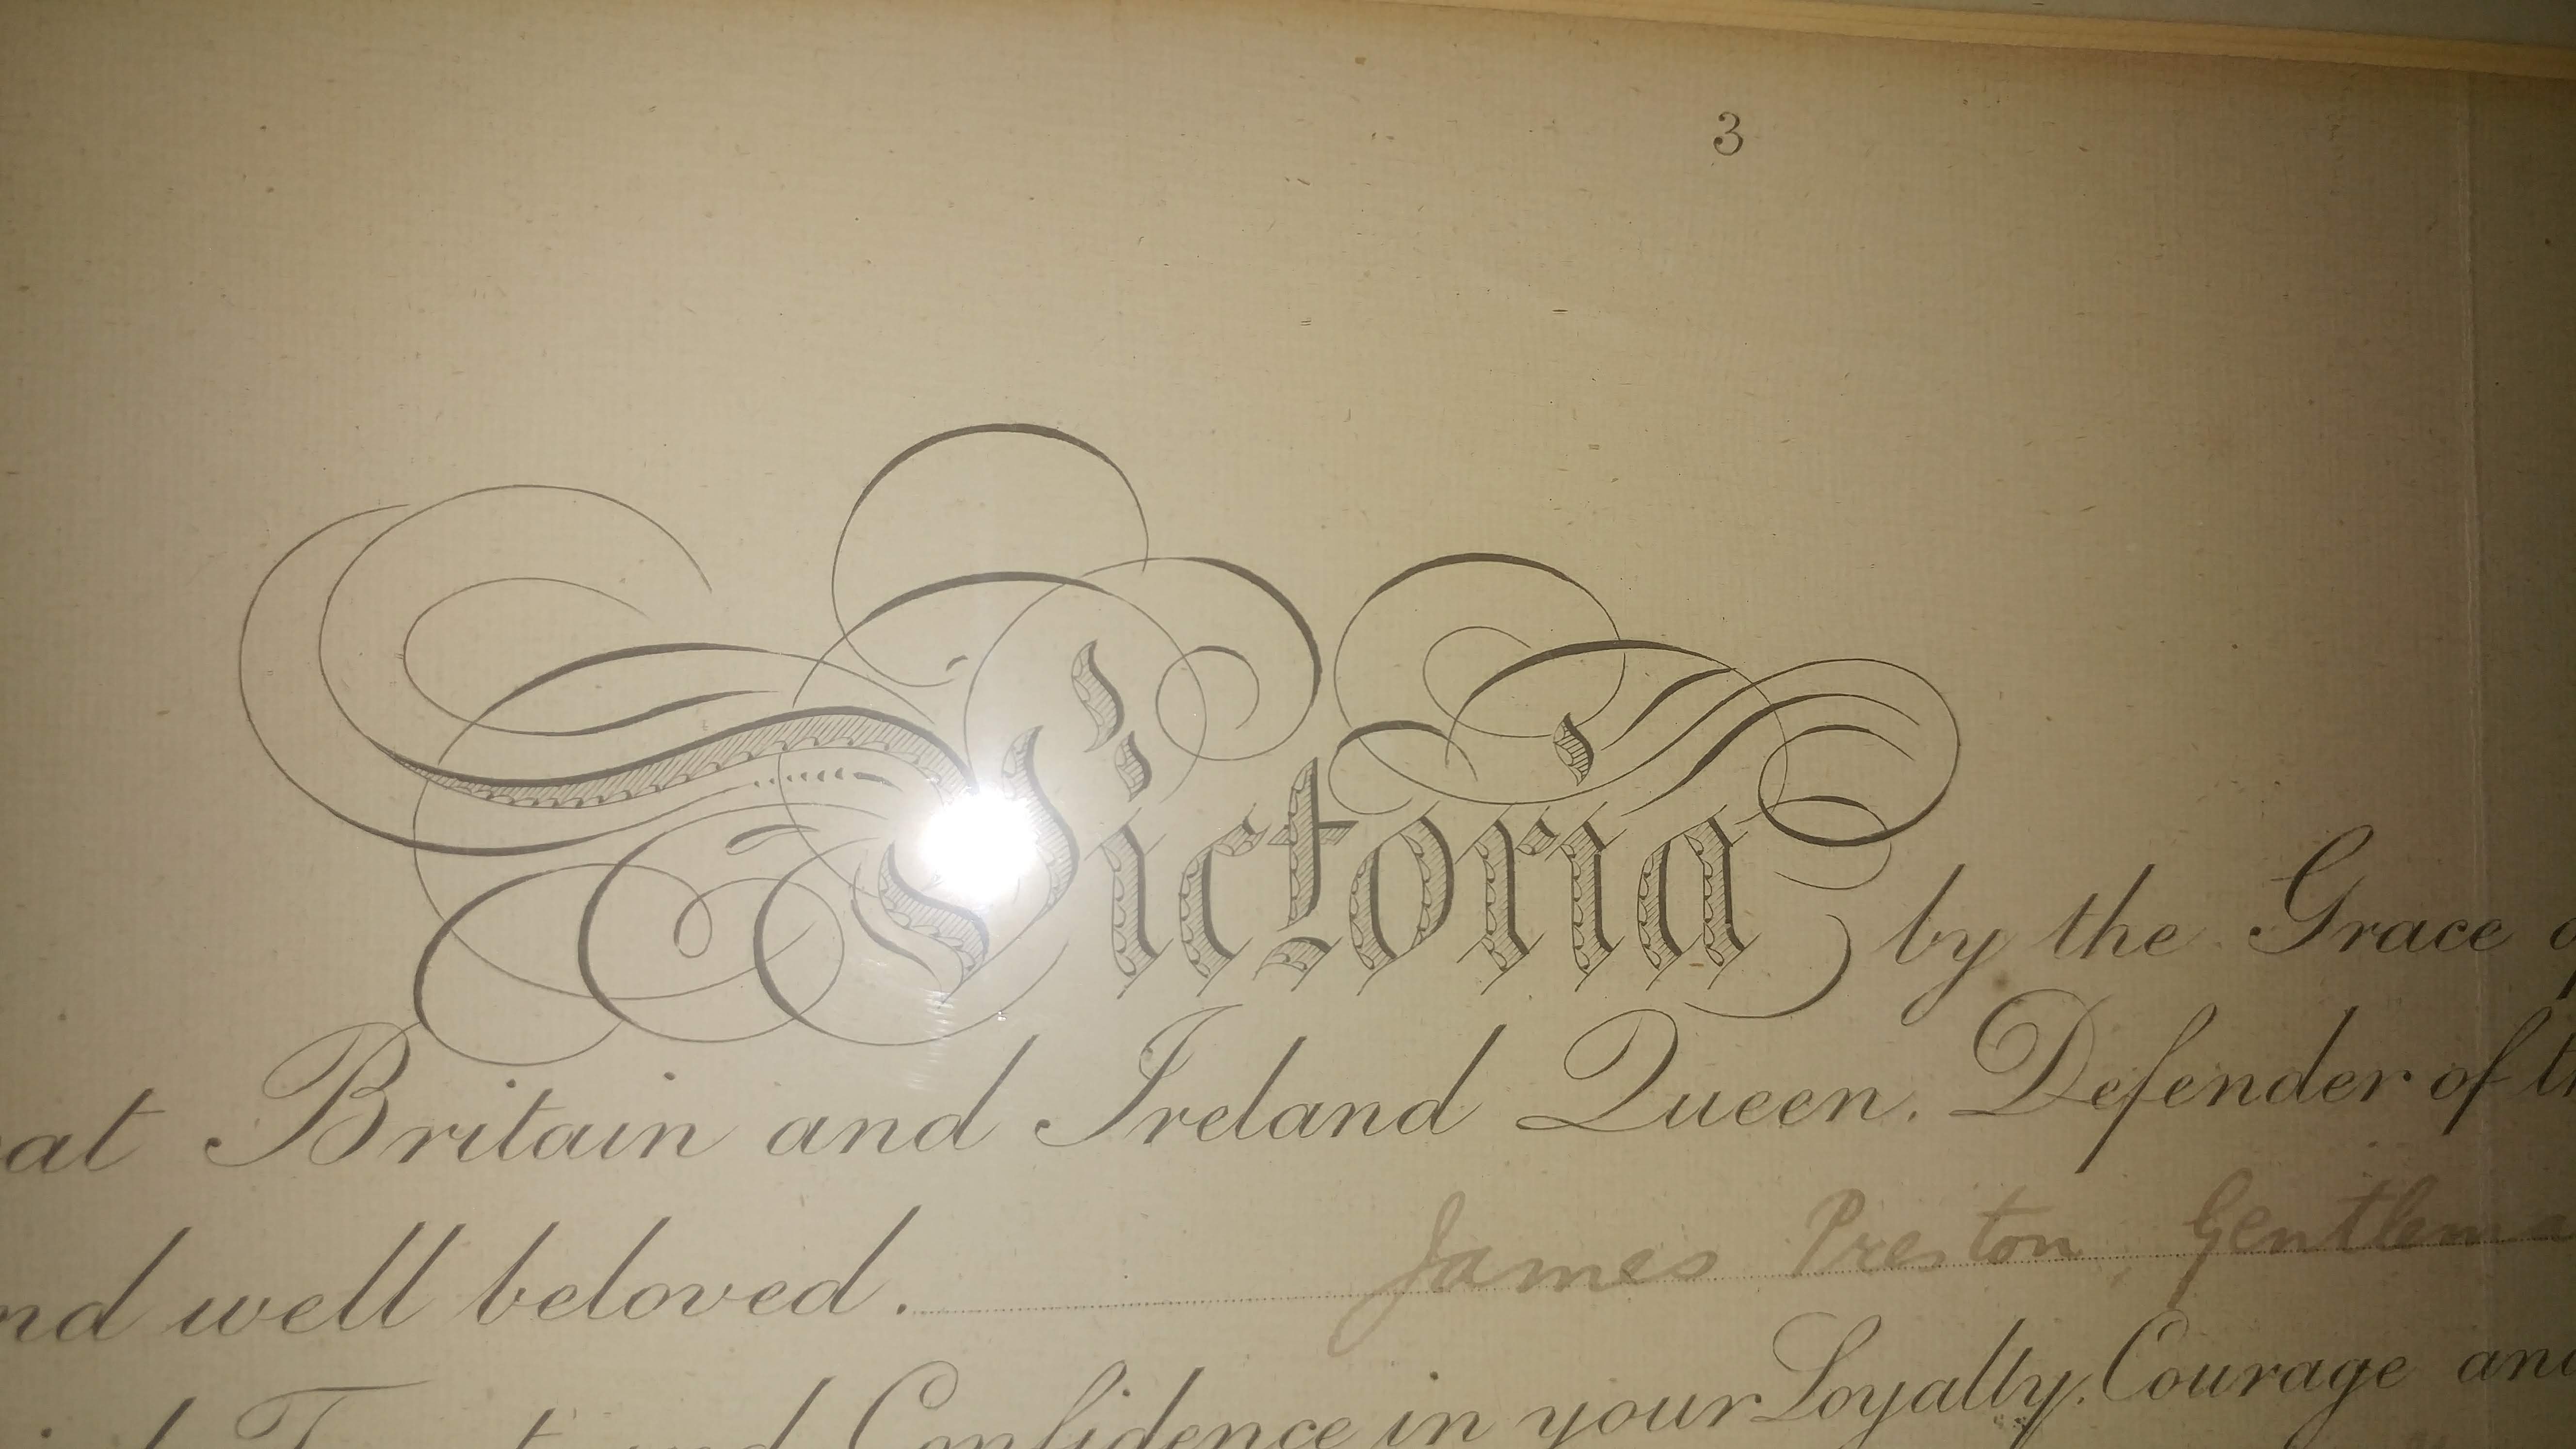 3
Victoria by the Grace
at Britain and Ireland Queen. Defender of
well beloved. James Preston, Gentlema
Confidence in your Loyalty, Courage and